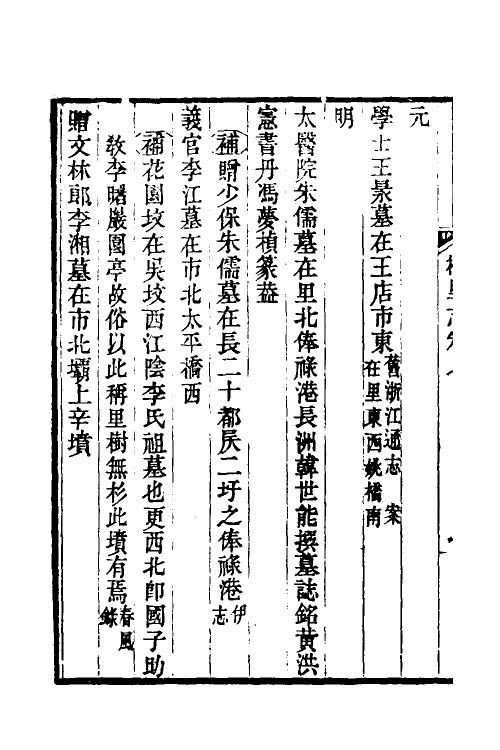 元
學士王景墓在王店市東舊浙江通志 案在里東西姚橋南
明
太醫院朱儒墓在里北俸祿港長洲韓世能撰墓誌銘黃洪
憲書丹馮夢楨篆葢
補贈少保朱儒墓在長二十都㞐二圩之俸祿港伊志
義官李江墓在市北太平橋西
補花園墳在吳墳西江陰李氏祖墓也更西北卽國子助
敎李曙巖園亭故俗以此稱里樹無杉此墳有焉春風錄
贈文林郎李湘墓在市北壩上辛墳